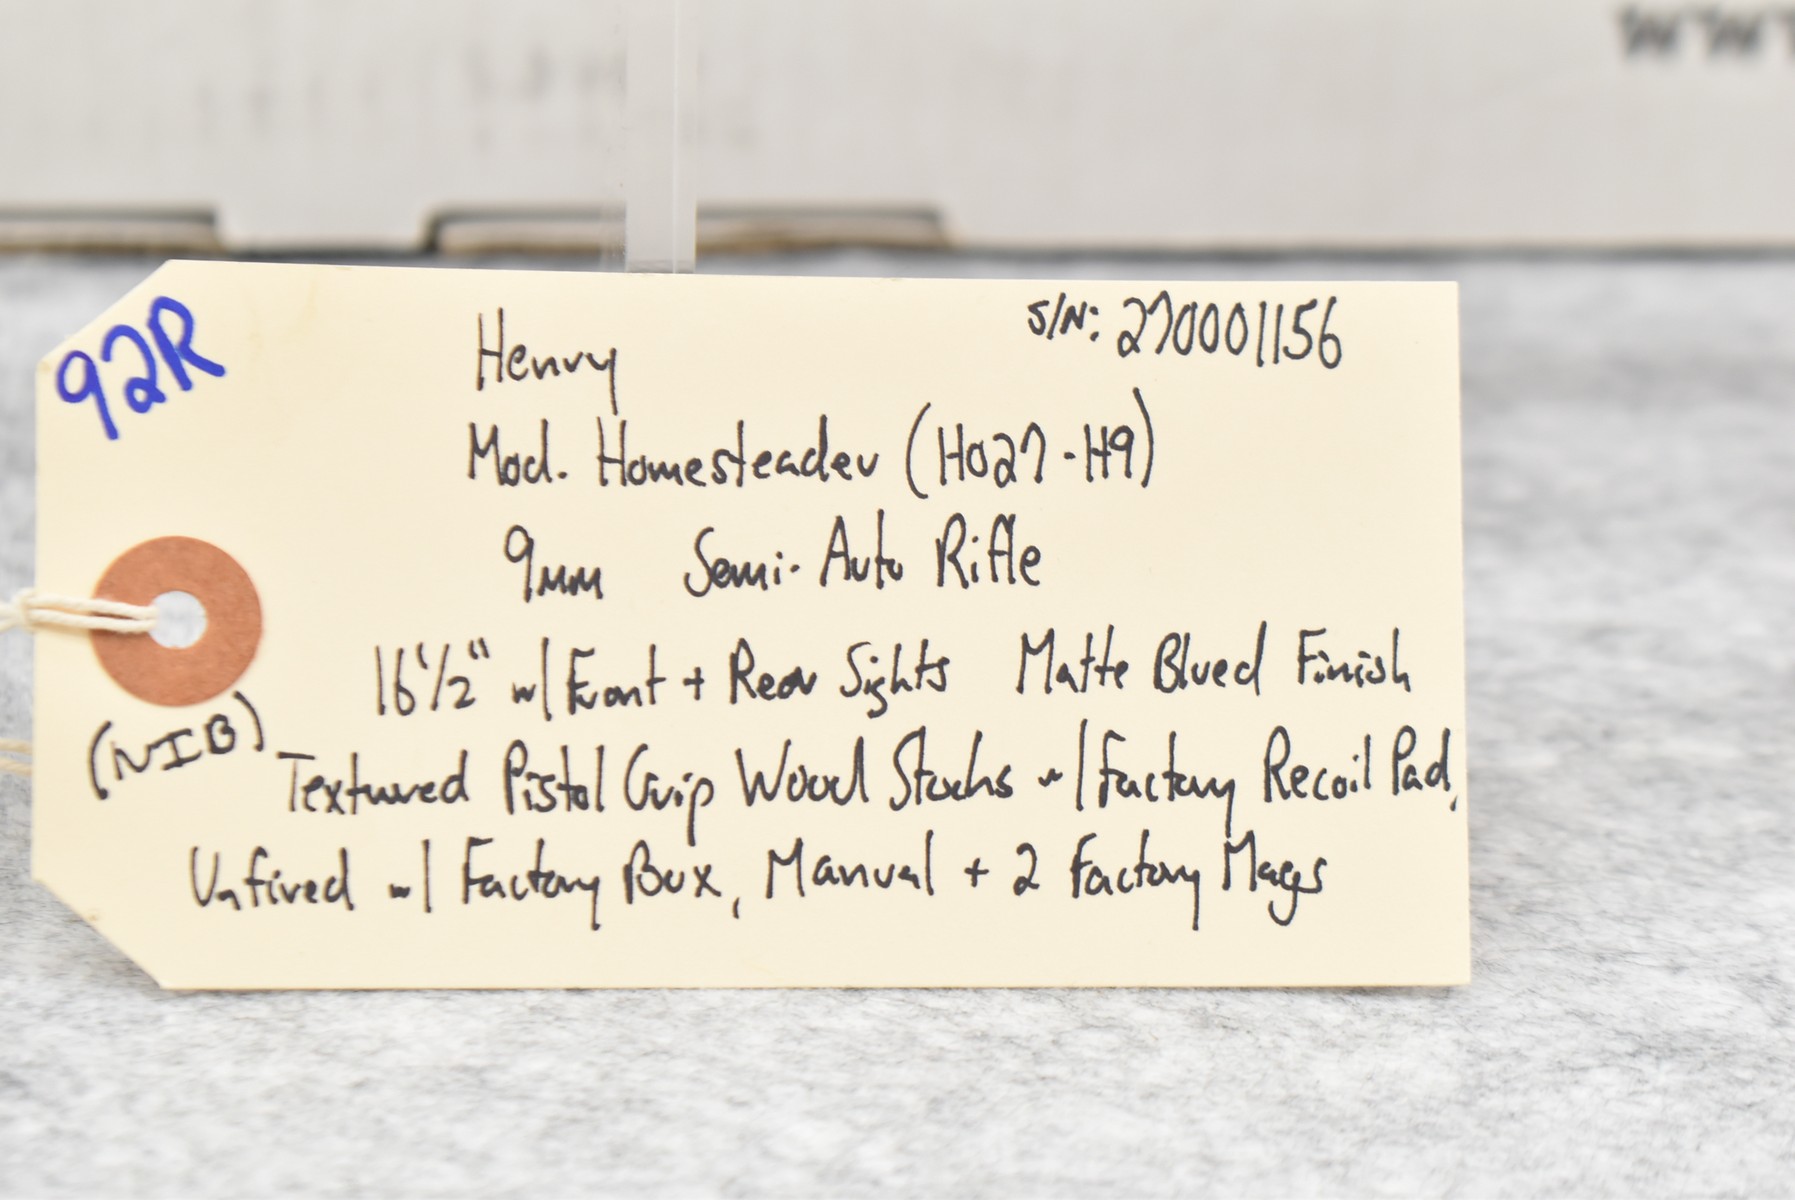 WWW
92R
Henry
S/N: 270001156
Mod. Homesteader (H027-H9)
9mm Semi-Auto Rifle
16 1/2" w/ Front + Rear Sights Matte Blued Finish
(NIB)
Textured Pistol Grip Wood Stocks w/ Factory Recoil Pad,
Unfired w/ Factory Box, Manual + 2 Factory Mags